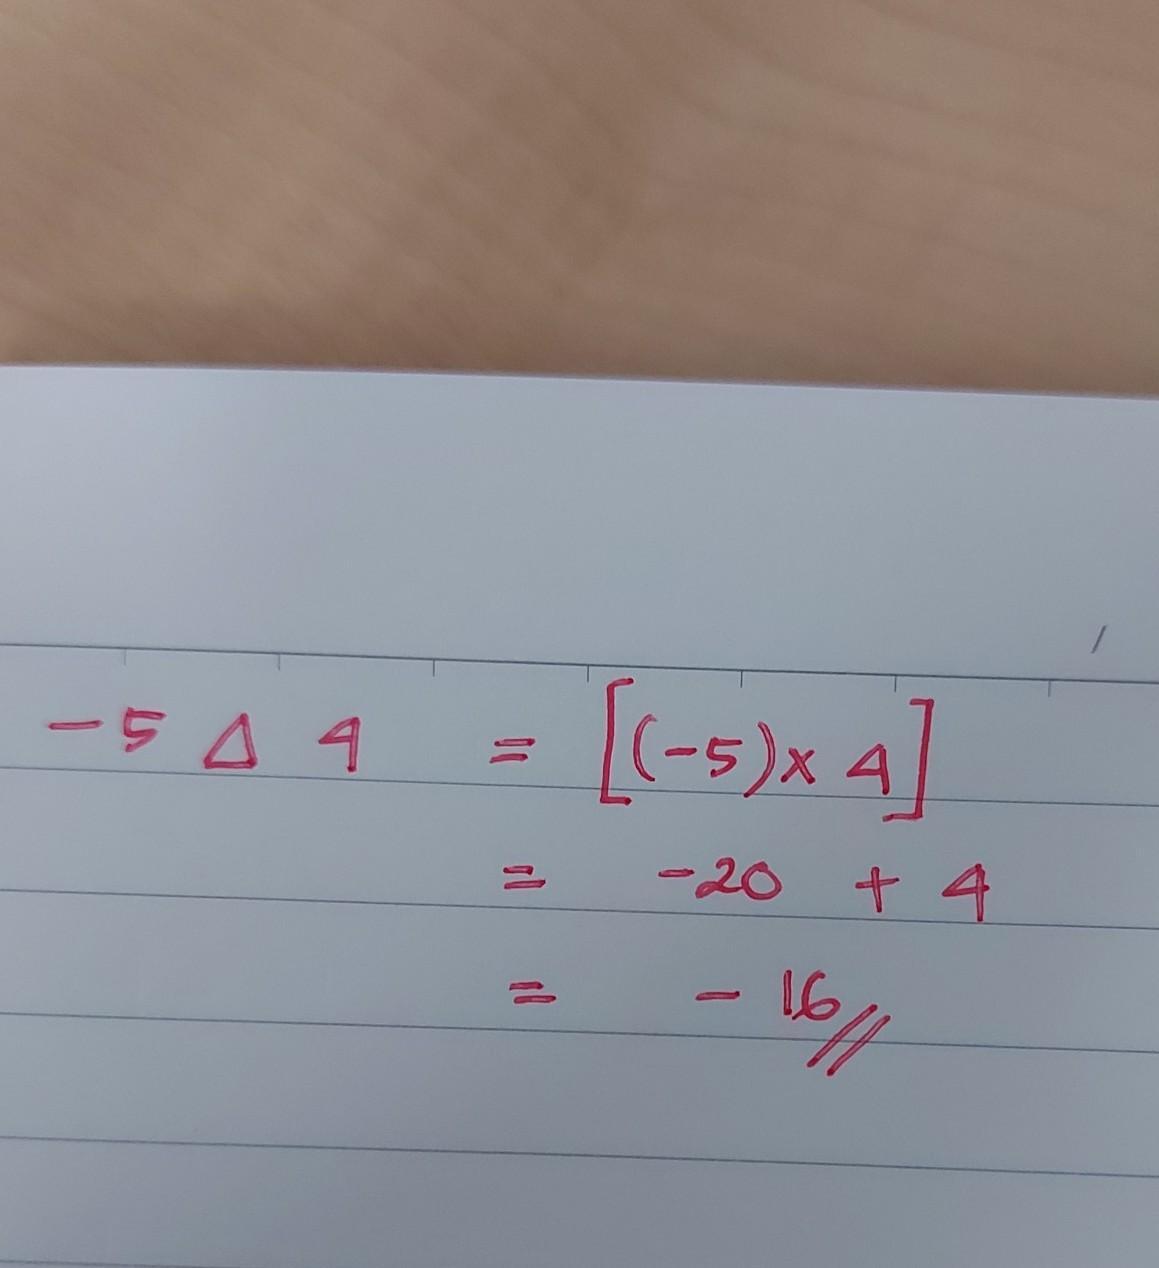 -5 Δ 4 = [(-5)x 4]
= -20 + 4
= - 16//